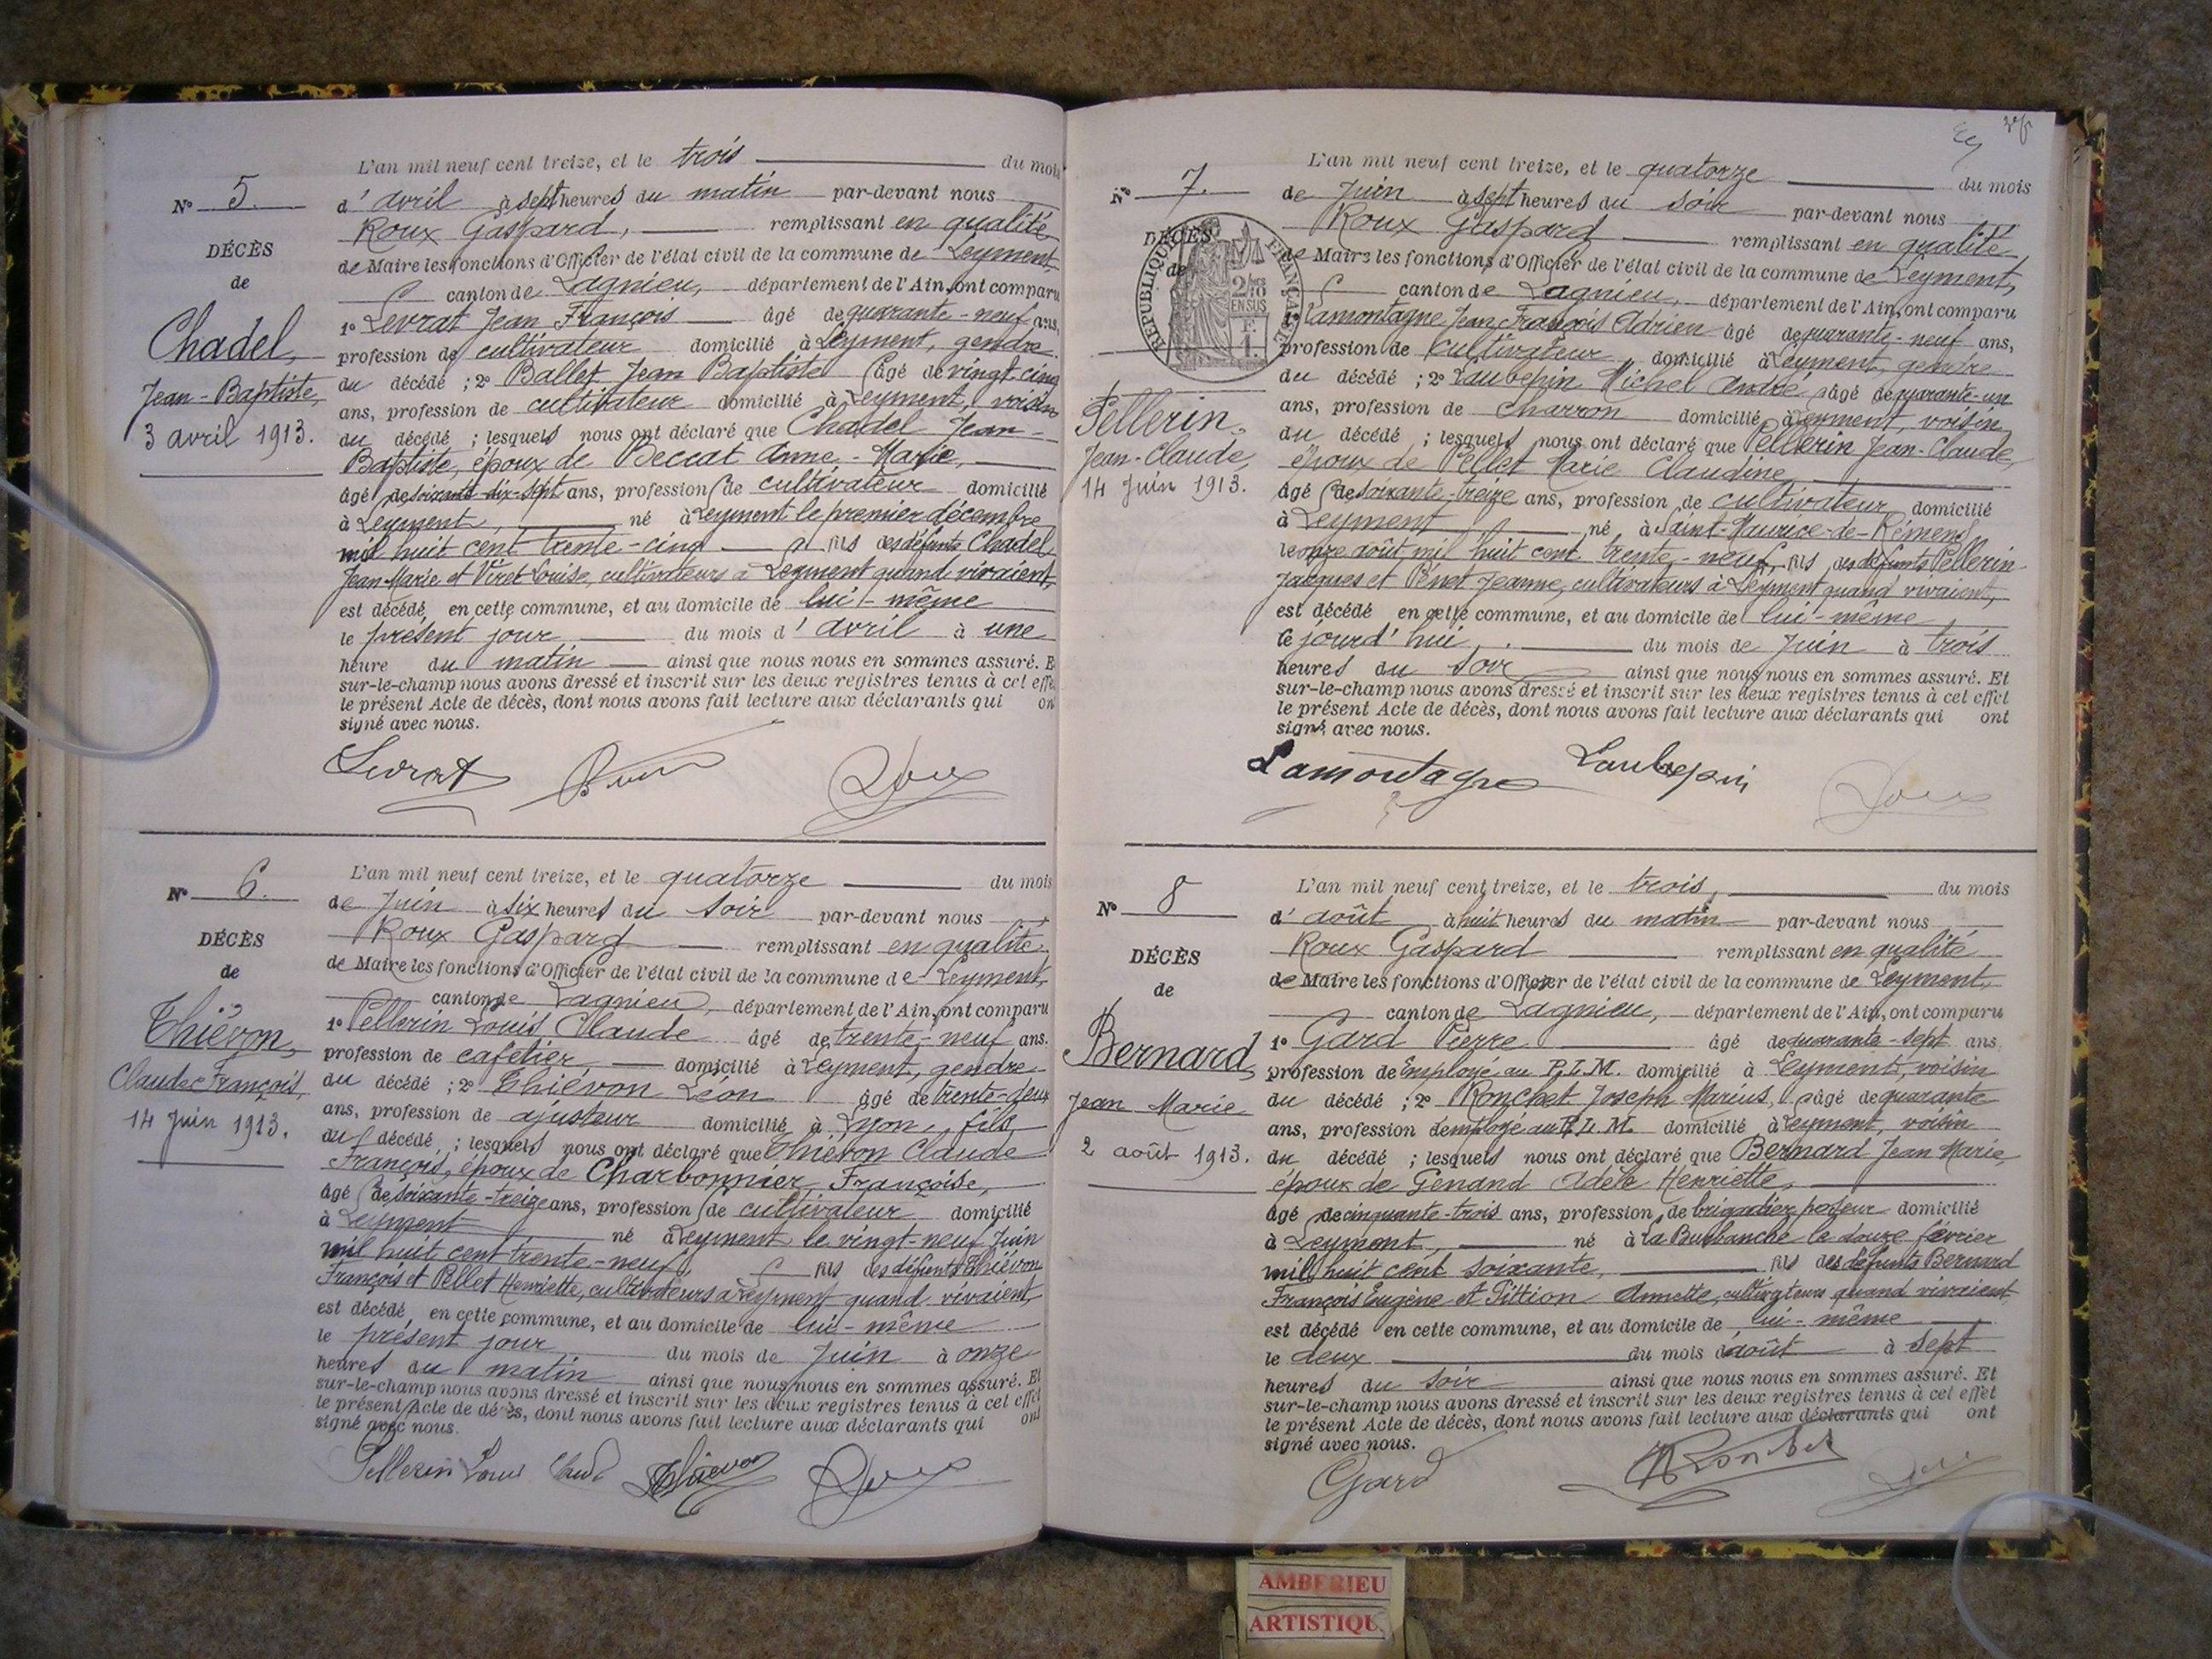 L'an mil neuf cent treize, et le trois du mois
N° 5. d'avril à sept heures du matin par-devant nous
Roux Gaspard, remplissant en qualité
DÉCÈS de Maire les fonctions d'Officier de l'état civil de la commune de Leyment,
de canton de Lagnieu, département de l'Ain, ont comparu
1° Levrat Jean François âgé de quarante-neuf ans,
Chadel, profession de cultivateur domicilié à Leyment, gendre
Jean-Baptiste, du décédé ; 2° Ballet Jean Baptiste âgé de vingt-cinq
ans, profession de cultivateur domicilié à Leyment, voisin
3 avril 1913. du décédé ; lesquels nous ont déclaré que Chadel Jean-
Baptiste, époux de Beccat Anne-Marie,
âgé de soixante-dix-sept ans, profession de cultivateur domicilié
à Leyment, né à Leyment le premier décembre
mil huit cent trente-cinq fils des défunts Chadel
Jean-Marie et Viret Louise, cultivateurs à Leyment quand vivaient,
est décédé en cette commune, et au domicile de lui-même
le présent jour du mois d'avril à une
heure du matin ainsi que nous nous en sommes assuré. E
sur-le-champ nous avons dressé et inscrit sur les deux registres tenus à cet effe
le présent Acte de décès, dont nous avons fait lecture aux déclarants qui on
signé avec nous.
Levrat Roux
L'an mil neuf cent treize, et le quatorze du mois
N° 6. de Juin à six heures du soir par-devant nous
Roux Gaspard remplissant en qualité
DÉCÈS de Maire les fonctions d'Officier de l'état civil de la commune de Leyment,
de canton de Lagnieu, département de l'Ain, ont comparu
1° Pellerin Louis Claude âgé de trente-neuf ans.
Thiévon, profession de cafetier domicilié à Leyment, gendre
Claude François, du décédé ; 2° Thiévon Léon âgé de trente-deux
ans, profession de ajusteur domicilié à Lyon, fils
14 Juin 1913. du décédé ; lesquels nous ont déclaré que Thiévon Claude
François, époux de Charbonnier Françoise,
âgé de soixante-treize ans, profession de cultivateur domicilié
à Leyment né à Leyment le vingt-neuf Juin
mil huit cent trente-neuf, fils des défunts Thiévon
François et Pellet Henriette, cultivateurs à Leyment quand vivaient,
est décédé en cette commune, et au domicile de lui-même
le présent jour du mois de Juin à onze
heures du matin ainsi que nous nous en sommes assuré. Et
sur-le-champ nous avons dressé et inscrit sur les deux registres tenus à cet effet
le présent Acte de décès, dont nous avons fait lecture aux déclarants qui ont
signé avec nous.
Pellerin Louis Claude Thiévon Roux
L'an mil neuf cent treize, et le quatorze du mois
N° 7. de Juin à sept heures du soir par-devant nous
Roux Gaspard remplissant en qualité
DÉCÈS de Maire les fonctions d'Officier de l'état civil de la commune de Leyment,
de canton de Lagnieu, département de l'Ain, ont comparu
RÉPUBLIQUE FRANÇAISE
2/10 EN SUS
1° Lamontagne Jean François Adrien âgé de quarante-neuf ans,
profession de cultivateur domicilié à Leyment, gendre
du décédé ; 2° Laubepin Michel André âgé de quarante-un
Pellerin, ans, profession de charron domicilié à Leyment, voisin
du décédé ; lesquels nous ont déclaré que Pellerin Jean-Claude,
Jean-Claude, époux de Pellet Marie Claudine
14 Juin 1913. âgé de soixante-treize ans, profession de cultivateur domicilié
à Leyment né à Saint-Maurice-de-Rémens
le onze août mil huit cent trente-neuf, fils des défunts Pellerin
Jacques et Pénet Jeanne, cultivateurs à Leyment quand vivaient,
est décédé en cette commune, et au domicile de lui-même
le jourd'hui, du mois de Juin à trois
heures du soir ainsi que nous nous en sommes assuré. Et
sur-le-champ nous avons dressé et inscrit sur les deux registres tenus à cet effet
le présent Acte de décès, dont nous avons fait lecture aux déclarants qui ont
signé avec nous.
Lamontagne Laubepin Roux
L'an mil neuf cent treize, et le trois, du mois
N° 8 d'août à huit heures du matin par-devant nous
Roux Gaspard remplissant en qualité
DÉCÈS de Maire les fonctions d'Officier de l'état civil de la commune de Leyment,
de canton de Lagnieu, département de l'Ain, ont comparu
1° Gard Pierre âgé de quarante-sept ans
Bernard, profession de Employé au P.L.M. domicilié à Leyment, voisin
Jean Marie du décédé ; 2° Ronchet Joseph Marius, âgé de quarante
ans, profession d'employé au P.L.M. domicilié à Leyment, voisin
2 août 1913. du décédé ; lesquels nous ont déclaré que Bernard Jean Marie,
époux de Genand Adèle Henriette,
âgé de cinquante-trois ans, profession de brigadier poseur domicilié
à Leyment, né à La Burbanche le douze février
mil huit cent soixante, fils des défunts Bernard
François Eugène et Pittion Annette, cultivateurs quand vivaient,
est décédé en cette commune, et au domicile de lui-même
le deux du mois d'août à sept
heures du soir ainsi que nous nous en sommes assuré. Et
sur-le-champ nous avons dressé et inscrit sur les deux registres tenus à cet effet
le présent Acte de décès, dont nous avons fait lecture aux déclarants qui ont
signé avec nous.
Gard Ronchet Roux
AMBERIEU
ARTISTIQU